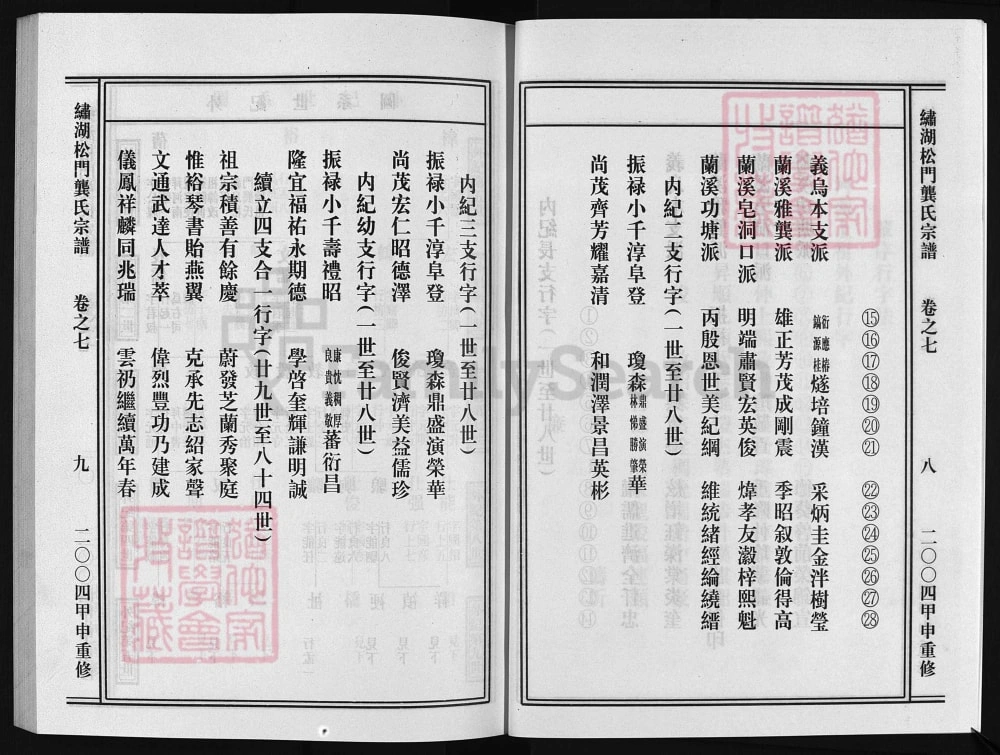 繡湖松門龔氏宗譜 卷之七 八 二〇〇四甲申重修
⑮⑯⑰⑱⑲⑳㉑ ㉒㉓㉔㉕㉖㉗㉘
義烏本支派 衍應椿 鎬源桂 燧培鐘漢 采炳圭金泮樹瑩
蘭溪雅龔派 雄正芳茂成剛震 季昭叙敦倫得高
蘭溪皂洞口派 明端肅賢宏英俊 煒孝友澱梓熙魁
蘭溪功塘派 丙殷恩世美紀綱 維統緒經綸繞縉
內紀二支行字(一世至廿八世)
振禄小千淳阜登 瓊森 鼎盛演榮 林悌勝肇 華
尚茂齊芳耀嘉清 和潤澤景昌英彬
內紀三支行字(一世至廿八世)
振禄小千淳阜登 瓊森鼎盛演榮華
尚茂宏仁昭德澤 俊賢濟美益儒珍
內紀幼支行字(一世至廿八世)
振禄小千壽禮昭 康忱稠厚 良貴義敬 蕃衍昌
隆宜福祐永期德 學啓奎輝謙明誠
續立四支合一行字(廿九世至八十四世)
祖宗積善有餘慶 蔚發芝蘭秀聚庭
惟裕琴書貽燕翼 克承先志紹家聲
文通武達人才萃 偉烈豐功乃建成
儀鳳祥麟同兆瑞 雲礽繼續萬年春
繡湖松門龔氏宗譜 卷之七 九 二〇〇四甲申重修
FamilySearch